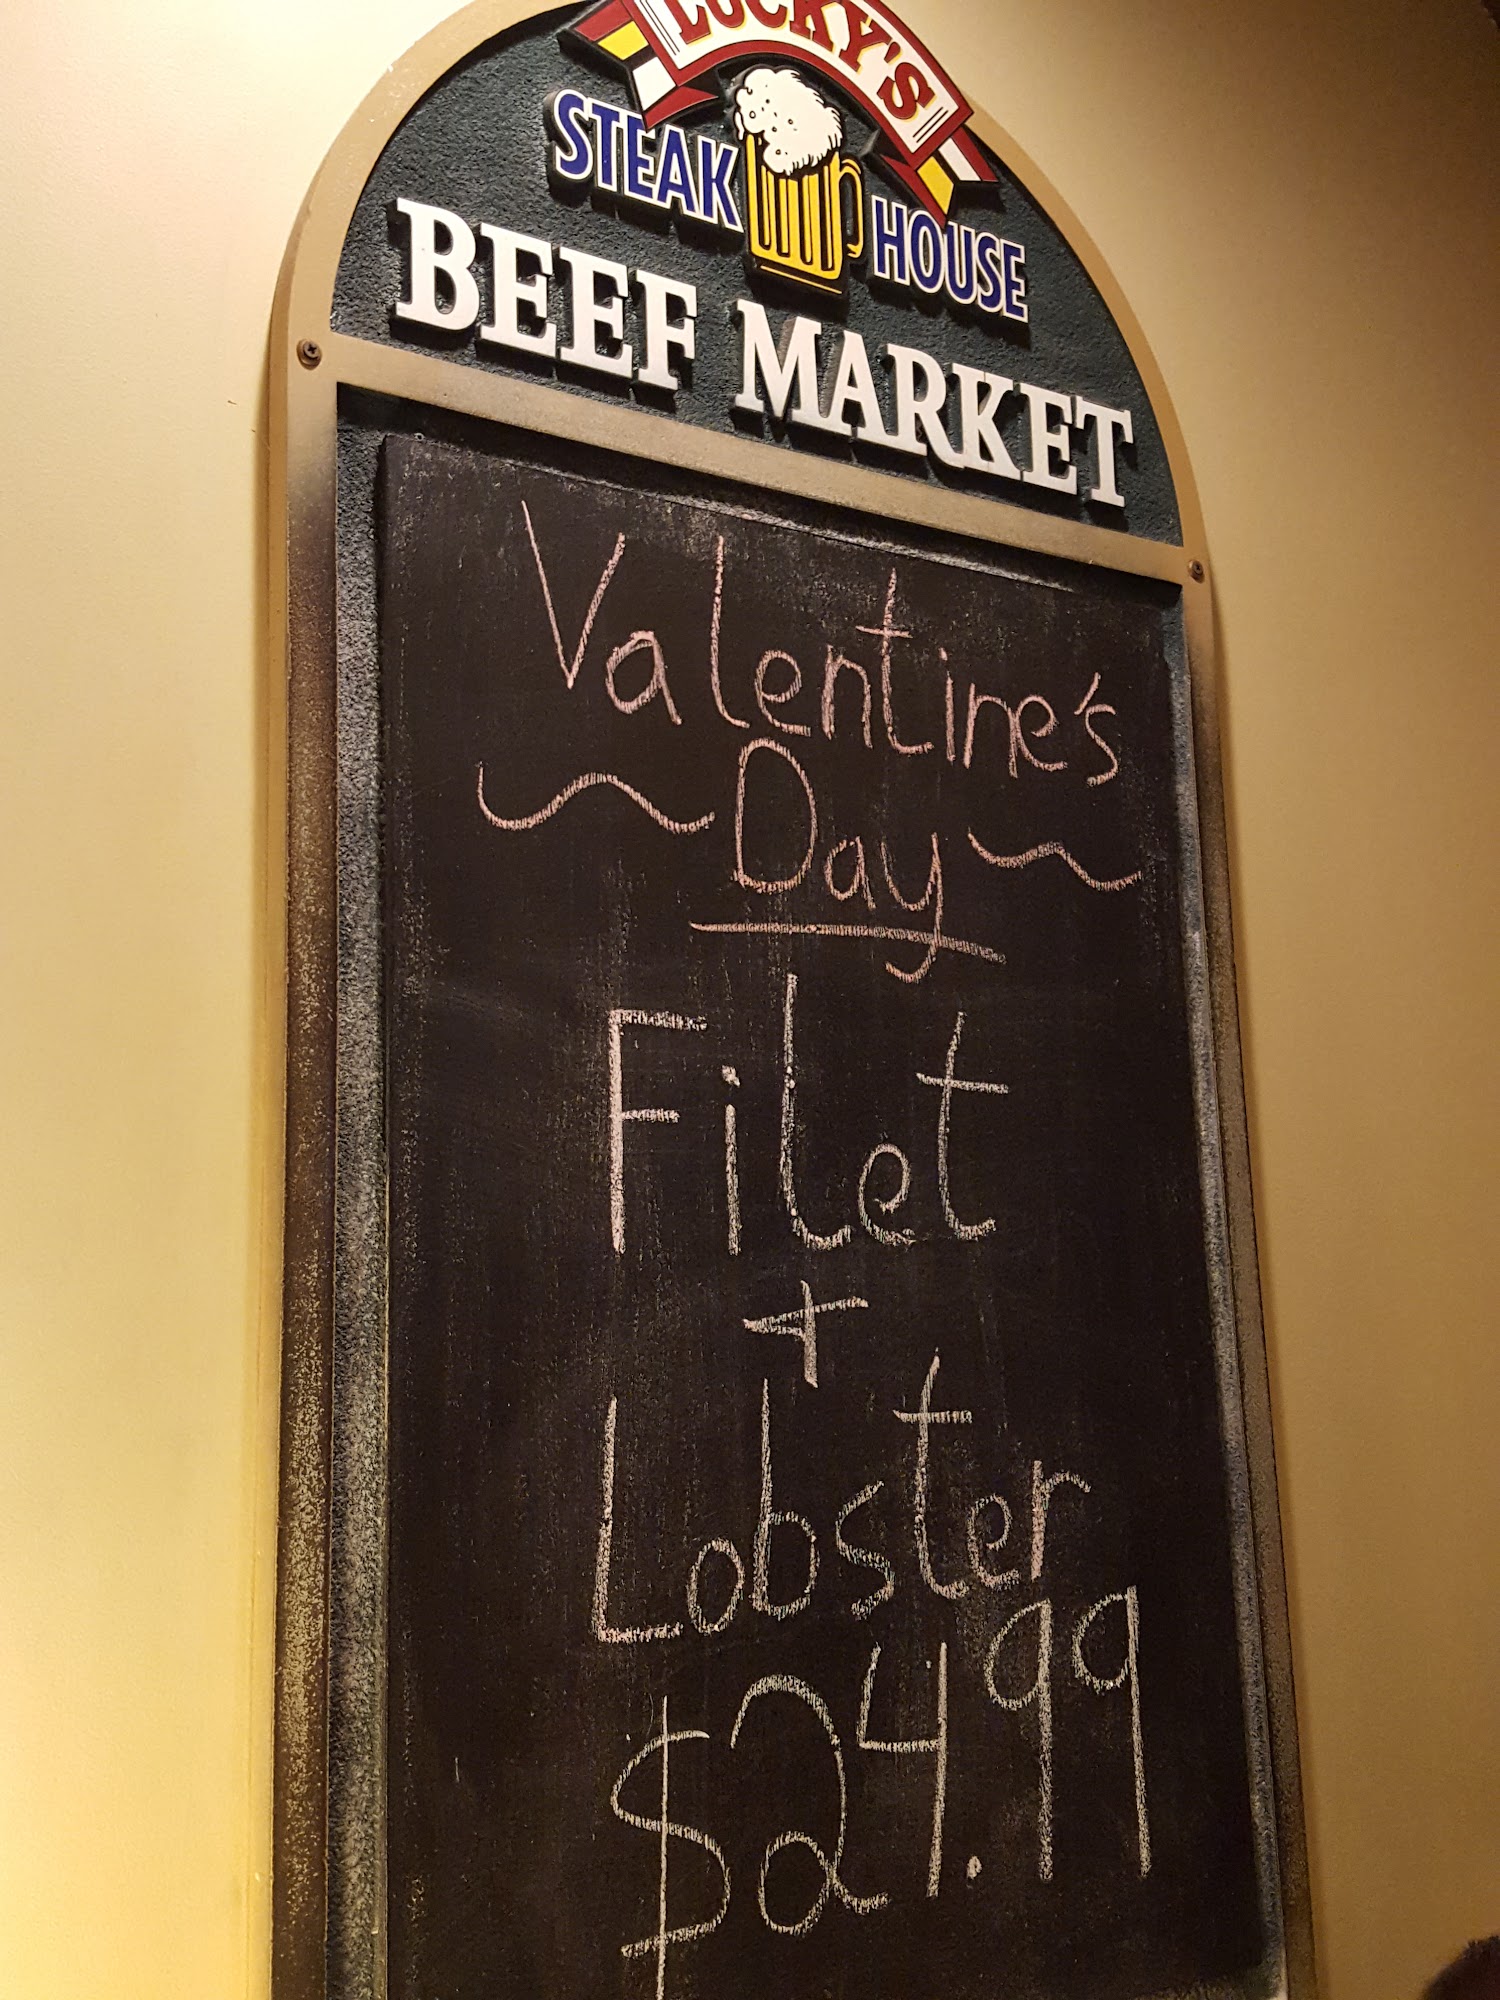 LUCKY'S
STEAK HOUSE
BEEF MARKET
Valentine's
~ Day ~
Filet
+
Lobster
$24.99